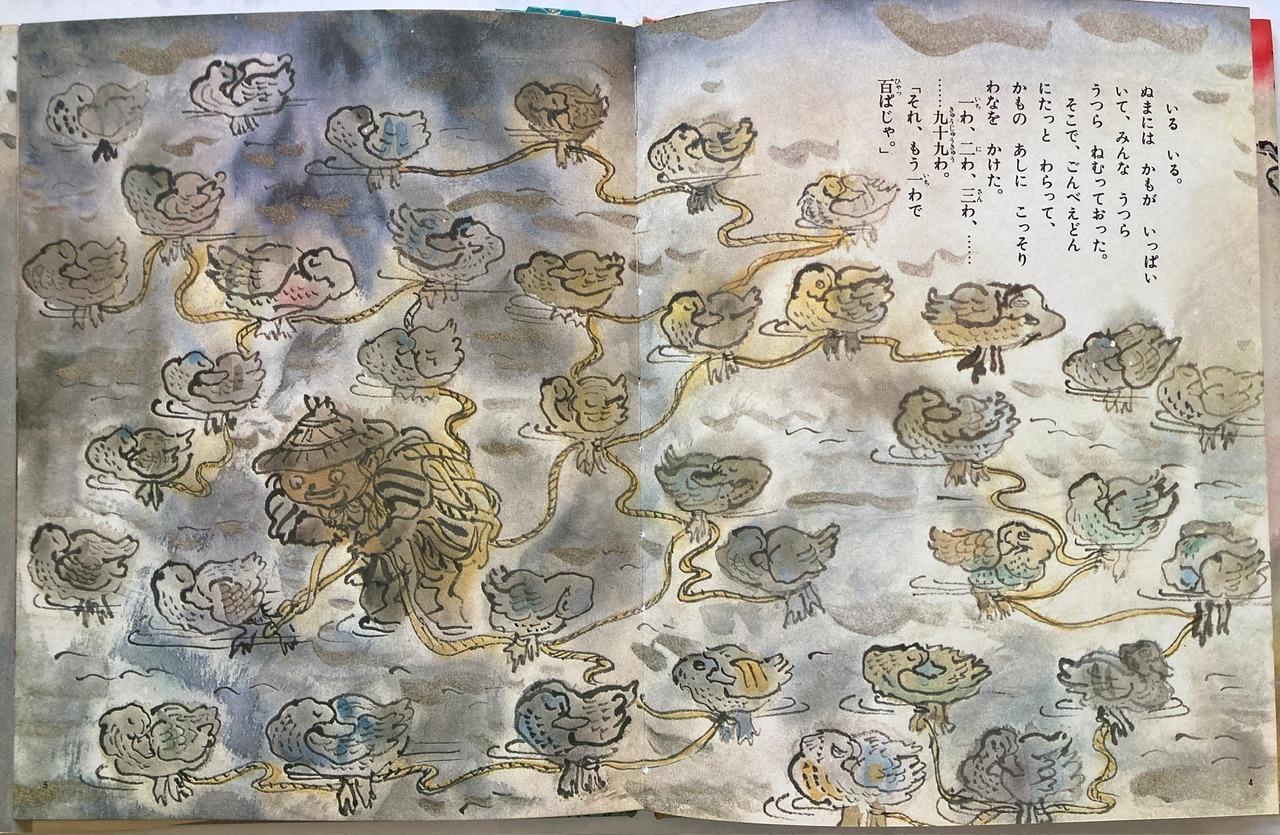 いる いる。
ぬまには かもが いっぱい
いて、みんな うつら
うつら ねむっておった。
そこで、ごんべえどん
にたっと わらって、
かもの あしに こっそり
わなを かけた。
一わ、二わ、三わ、……
……九十九わ。
「それ、もう一わで
百ぱじゃ。」
5
4